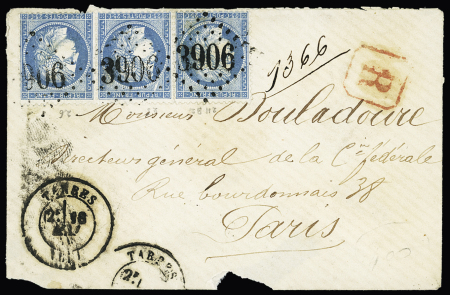 906 3906 3906
1366
R
Monsieur Bouladoire
Directeur général de la Cie fédérale
Rue bourdonnais 38
Paris
TARBES
TARBES